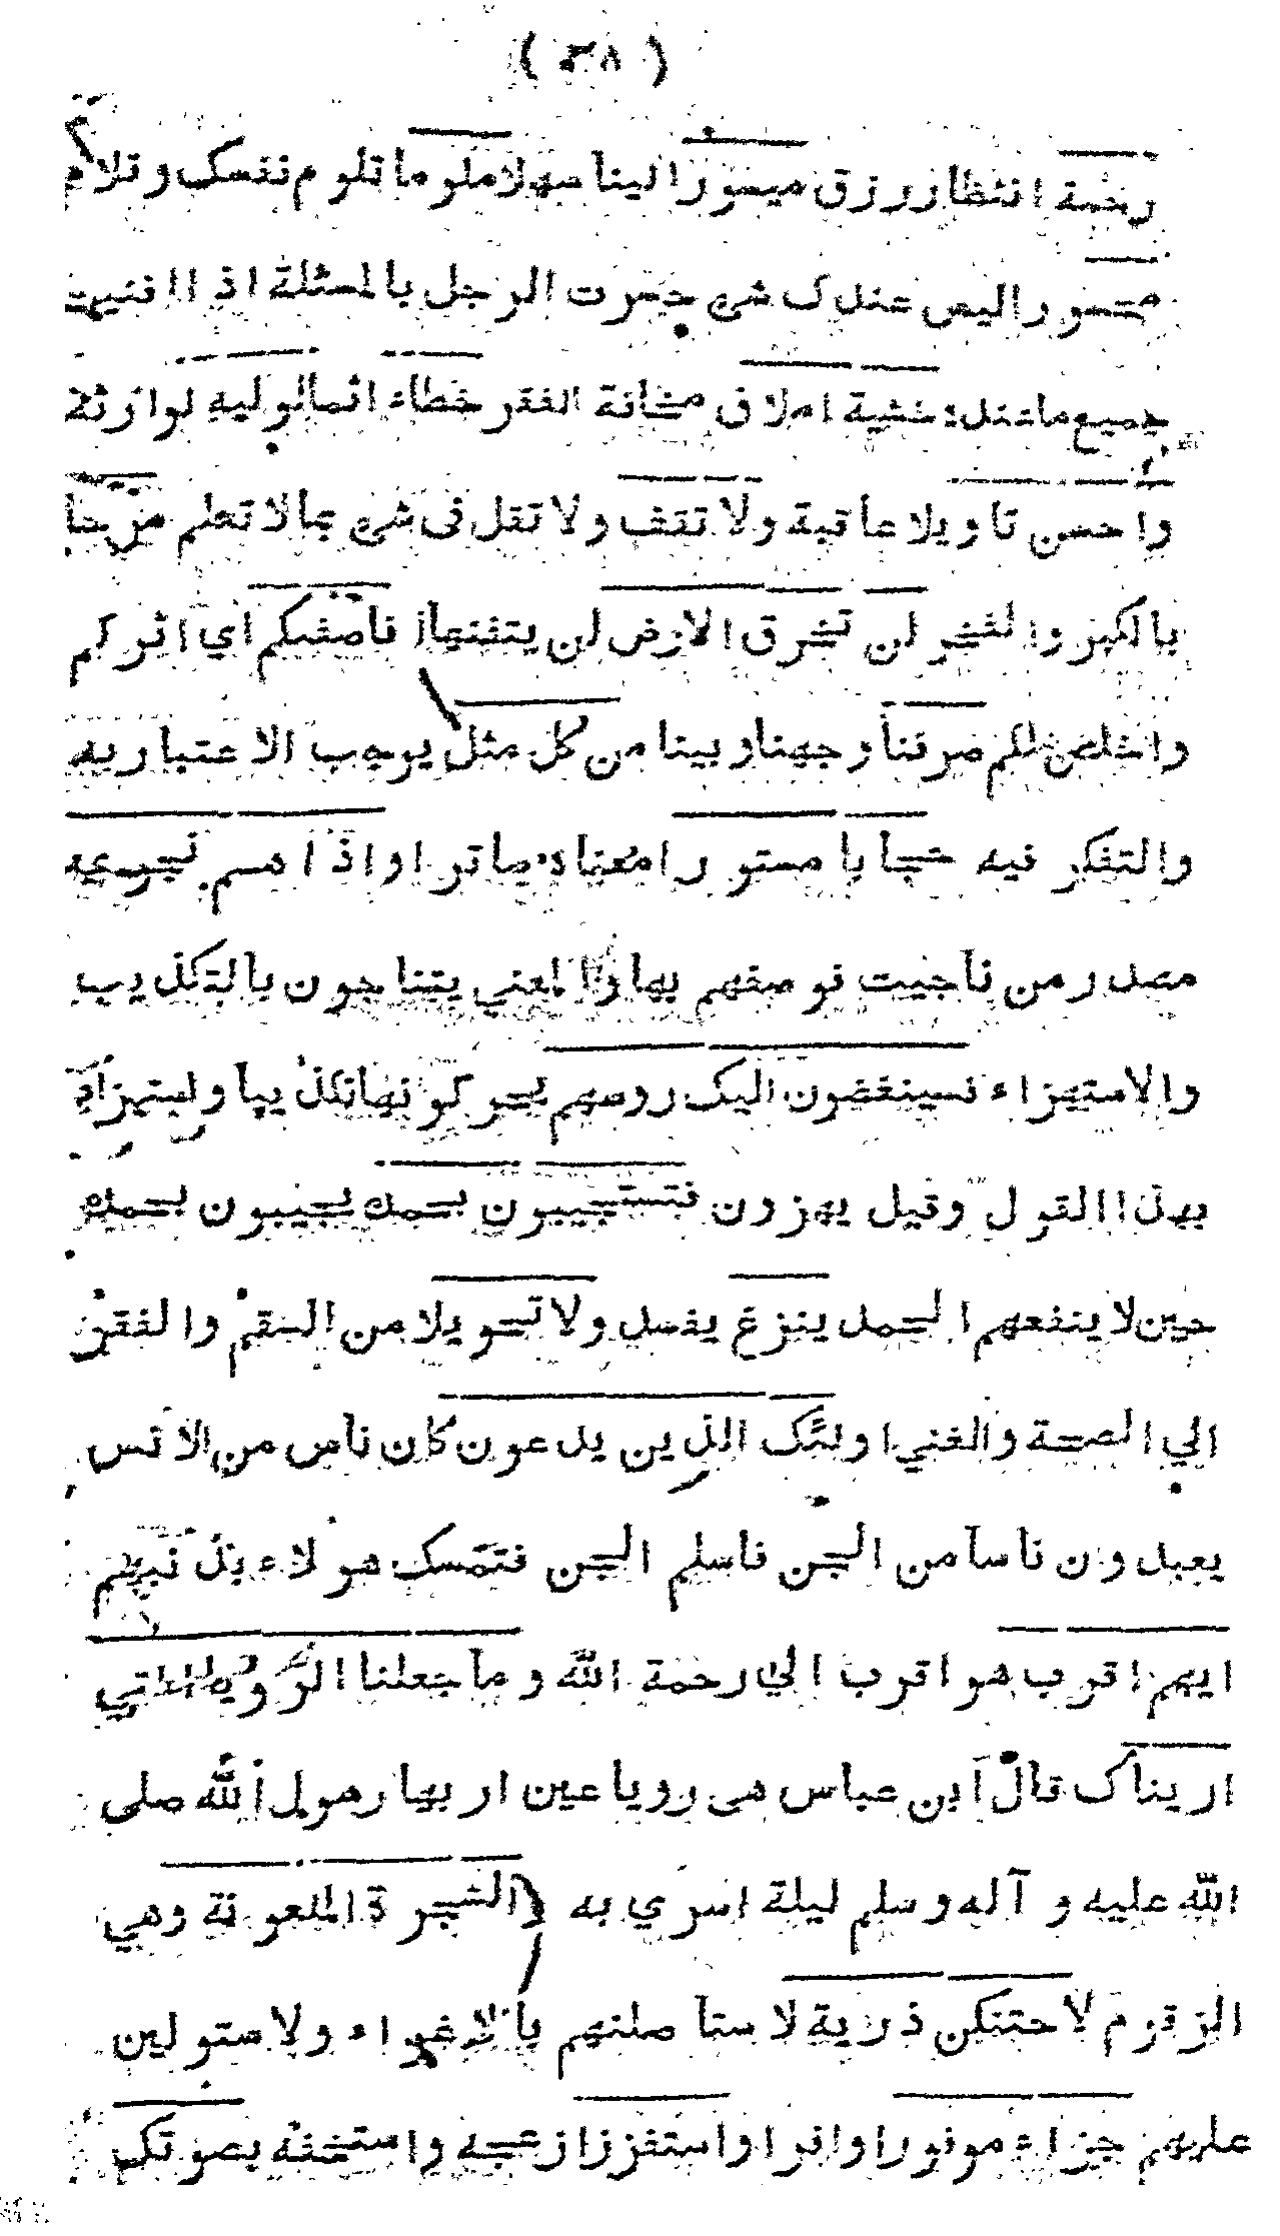 ( ٣٨ )
رحمة انتظار رزق ميسورا لينا سهلا ملوما تلوم نفسك وتلام
محسورا ليس عندك شي حسرت الرجل بالمسئلة اذا افنيت
جميع ما عنده خشية املاق مخانة الفقر خطاء اثما لوليه لوارثه
واحسن تاويلا عاقبة ولا تقف ولا تقل في شي بما لا تعلم مرحا
بالكبر والفخر لن تخرق الارض لن يثقبها افاصفيكم اي آثركم
واخلص لكم صرفنا وجهنا وبينا من كل مثل يوجب الاعتبار به
والتفكر فيه حجابا مستورا معناه ساترا واذا هم نجوى
مصدر من ناجيت فوصفهم بها والمعني يتناجون بالتكذيب
والاستهزاء فسينغضون اليك روسهم يحركونها تكذيبا واستهزاء
بهذا القول وقيل يهزون فتستجيبون بحمده يجيبون بحمده
حين لا ينفعهم الحمد ينزغ يفسد ولا تحويلا من السقم والفقر
الي الصحة والغني اولئك الذين يدعون كان ناس من الانس
يعبدون ناسا من الجن فاسلم الجن فتمسك هولاء بدينهم
ايهم اقرب هو اقرب الي رحمة الله وما جعلنا الرويا التي
اريناك قال ابن عباس هي رويا عين اريها رسول الله صلى
الله عليه و آله وسلم ليلة اسري به والشجرة الملعونة وهي
الزقوم لاحتنكن ذرية لاستاصلنهم بالاغواء ولاستولين
عليهم جزاء موفورا وافرا واستفزز ازعجه واستخفه بصوتك